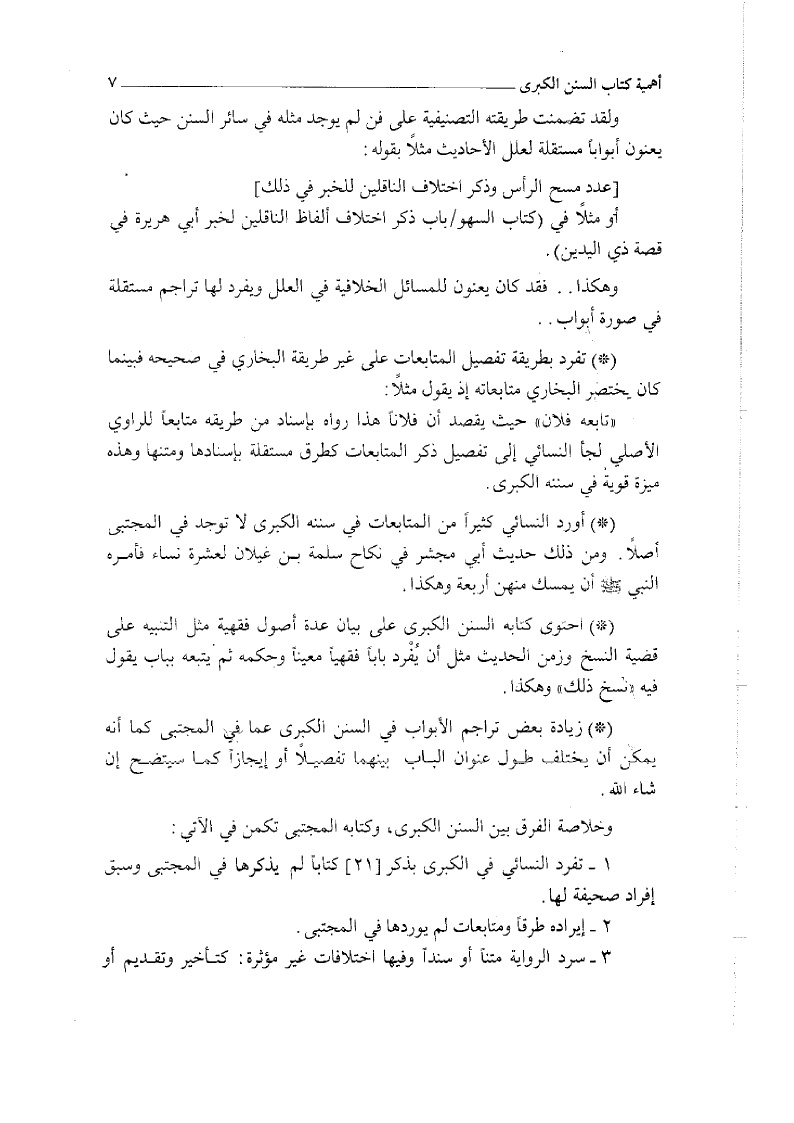 أهمية كتاب السنن الكبرى ــــــــــــــــــــــــــــــــ ٧
ولقد تضمنت طريقته التصنيفية على فن لم يوجد مثله في سائر السنن حيث كان
يعنون أبواباً مستقلة لعلل الأحاديث مثلاً بقوله :
[عدد مسح الرأس وذكر اختلاف الناقلين للخبر في ذلك]
أو مثلاً في (كتاب السهو/باب ذكر اختلاف ألفاظ الناقلين لخبر أبي هريرة في
قصة ذي اليدين).
وهكذا. . فقد كان يعنون للمسائل الخلافية في العلل ويفرد لها تراجم مستقلة
في صورة أبواب. .
(*) تفرد بطريقة تفصيل المتابعات على غير طريقة البخاري في صحيحه فبينما
كان يختصر البخاري متابعاته إذ يقول مثلاً:
«تابعه فلان» حيث يقصد أن فلاناً هذا رواه بإسناد من طريقه متابعاً للراوي
الأصلي لجأ النسائي إلى تفصيل ذكر المتابعات كطرق مستقلة بإسنادها ومتنها وهذه
ميزة قوية في سننه الكبرى.
(*) أورد النسائي كثيراً من المتابعات في سننه الكبرى لا توجد في المجتبى
أصلاً. ومن ذلك حديث أبي مجشر في نكاح سلمة بـن غيلان لعشرة نساء فأمـره
النبي ﷺ أن يمسك منهن أربعة وهكذا.
(*) احتوى كتابه السنن الكبرى على بيان عدة أصول فقهية مثل التنبيه على
قضية النسخ وزمن الحديث مثل أن يُفْرد باباً فقهياً معيناً وحكمه ثم يتبعه بباب يقول
فيه «نسخ ذلك» وهكذا.
(*) زيادة بعض تراجم الأبواب في السنن الكبرى عما في المجتبى كما أنه
يمكن أن يختلف طـول عنوان البـاب بينهما تفصيـلاً أو إيجازاً كمـا سيتضـح إن
شاء الله .
وخلاصة الفرق بين السنن الكبرى، وكتابه المجتبى تكمن في الآتي :
١ ـ تفرد النسائي في الكبرى بذكر [٢١] كتاباً لم يذكرها في المجتبى وسبق
إفراد صحيفة لها.
٢ ـ إيراده طرقاً ومتابعات لم يوردها في المجتبى .
٣ ـ سرد الرواية متناً أو سنداً وفيها اختلافات غير مؤثرة: كتـأخير وتقـديم أو